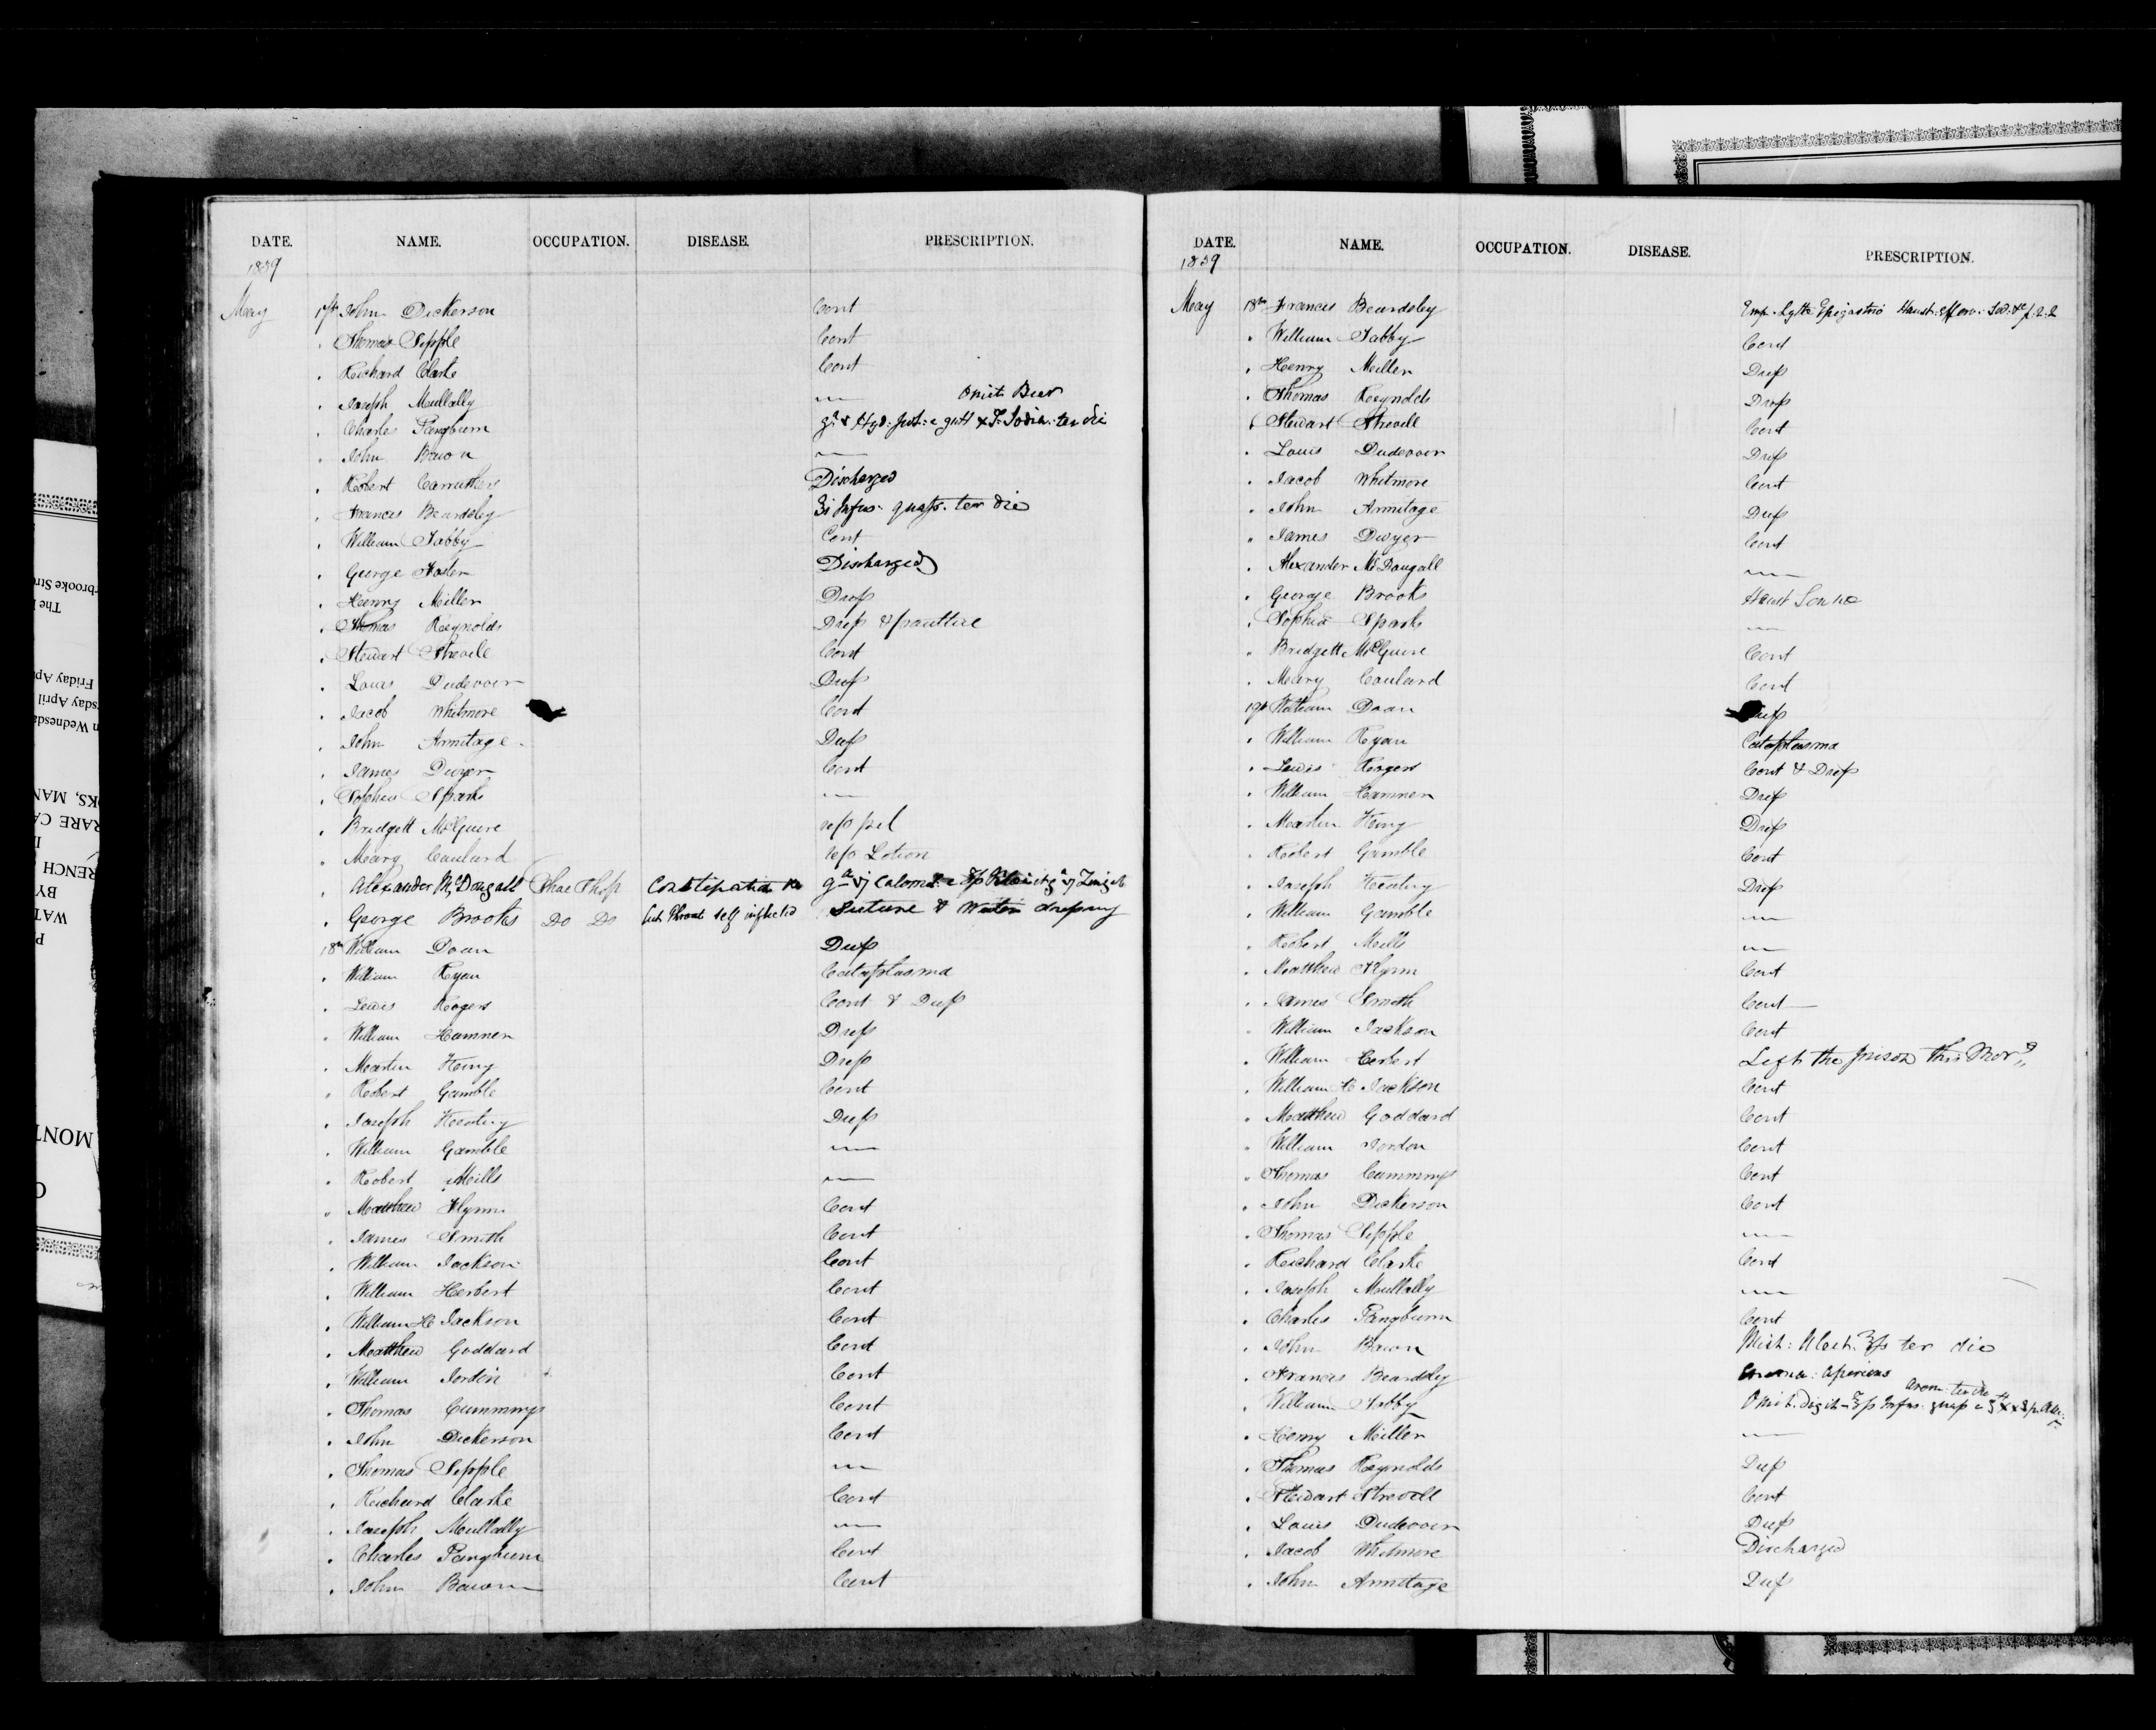 DATE. NAME. OCCUPATION. DISEASE. PRESCRIPTION.
1859
May 17th John Dickerson Cont
" Thomas Sipple Cont
" Richard Clarke Cont
" Joseph Mullally — Omit Beer
" Charles Pangburn
" John Bacon —
" Robert Carruthers Discharged
" Francis Beardsley ℥i Infus. quass. ter die
" William Tabby Cont
" George Foster Discharged
" Henry Miller Dress
" Thomas Reynolds Dress & poultice
" Stewart Strevell Cont
" Louis Dudevoir Dress
" Jacob Whitmore Cont
" John Armitage Dress
" James Dwyer Cont
" Sophia Sparks —
" Bridgett McGuire rep pil
" Mary Coulard rep Lotion
" Alexander McDougall Shoe Shop Constipation
" George Brooks Do Do Cut throat self inflicted Suture & Water dressing
18th William Doan Dress
" William Ryan Cataplasma
" Lewis Rogers Cont & Dress
" William Hamner Dress
" Martin King Dress
" Robert Gamble Cont
" Joseph Keating Dress
" William Gamble —
" Robert Mills —
" Matthew Flynn Cont
" James Smith Cont
" William Jackson Cont
" William Herbert Cont
" William H Jackson Cont
" Matthew Goddard Cont
" William Jordon Cont
" Thomas Cummings Cont
" John Dickerson Cont
" Thomas Sipple —
" Richard Clarke Cont
" Joseph Mullally —
" Charles Pangburn Cont
" John Bacon Cont
DATE. NAME. OCCUPATION. DISEASE. PRESCRIPTION.
1859
May 18th Francis Beardsley Emp. Lytta Epigastrio Haust. efferv.
" William Tabby Cont
" Henry Miller Dress
" Thomas Reynolds Dress
" Stewart Strevell Cont
" Louis Dudevoir Dress
" Jacob Whitmore Cont
" John Armitage Dress
" James Dwyer Cont
" Alexander McDougall —
" George Brooks Haust Senna
" Sophia Sparks —
" Bridgett McGuire Cont
" Mary Coulard Cont
19th William Doan Dress
" William Ryan Cataplasma
" Lewis Rogers Cont & Dress
" William Hamner Dress
" Martin King Dress
" Robert Gamble Cont
" Joseph Keating Dress
" William Gamble —
" Robert Mills —
" Matthew Flynn Cont
" James Smith Cont
" William Jackson Cont
" William Herbert Left the prison this Morg
" William H Jackson Cont
" Matthew Goddard Cont
" William Jordon Cont
" Thomas Cummings Cont
" John Dickerson Cont
" Thomas Sipple —
" Richard Clarke Cont
" Joseph Mullally —
" Charles Pangburn Cont
" John Bacon Mist: ter die
" Francis Beardsley Enema: Aperiens
" William Tabby Omit. digit
" Henry Miller —
" Thomas Reynolds Dress
" Stewart Strevell Cont
" Louis Dudevoir Dress
" Jacob Whitmore Discharged
" John Armitage Dress